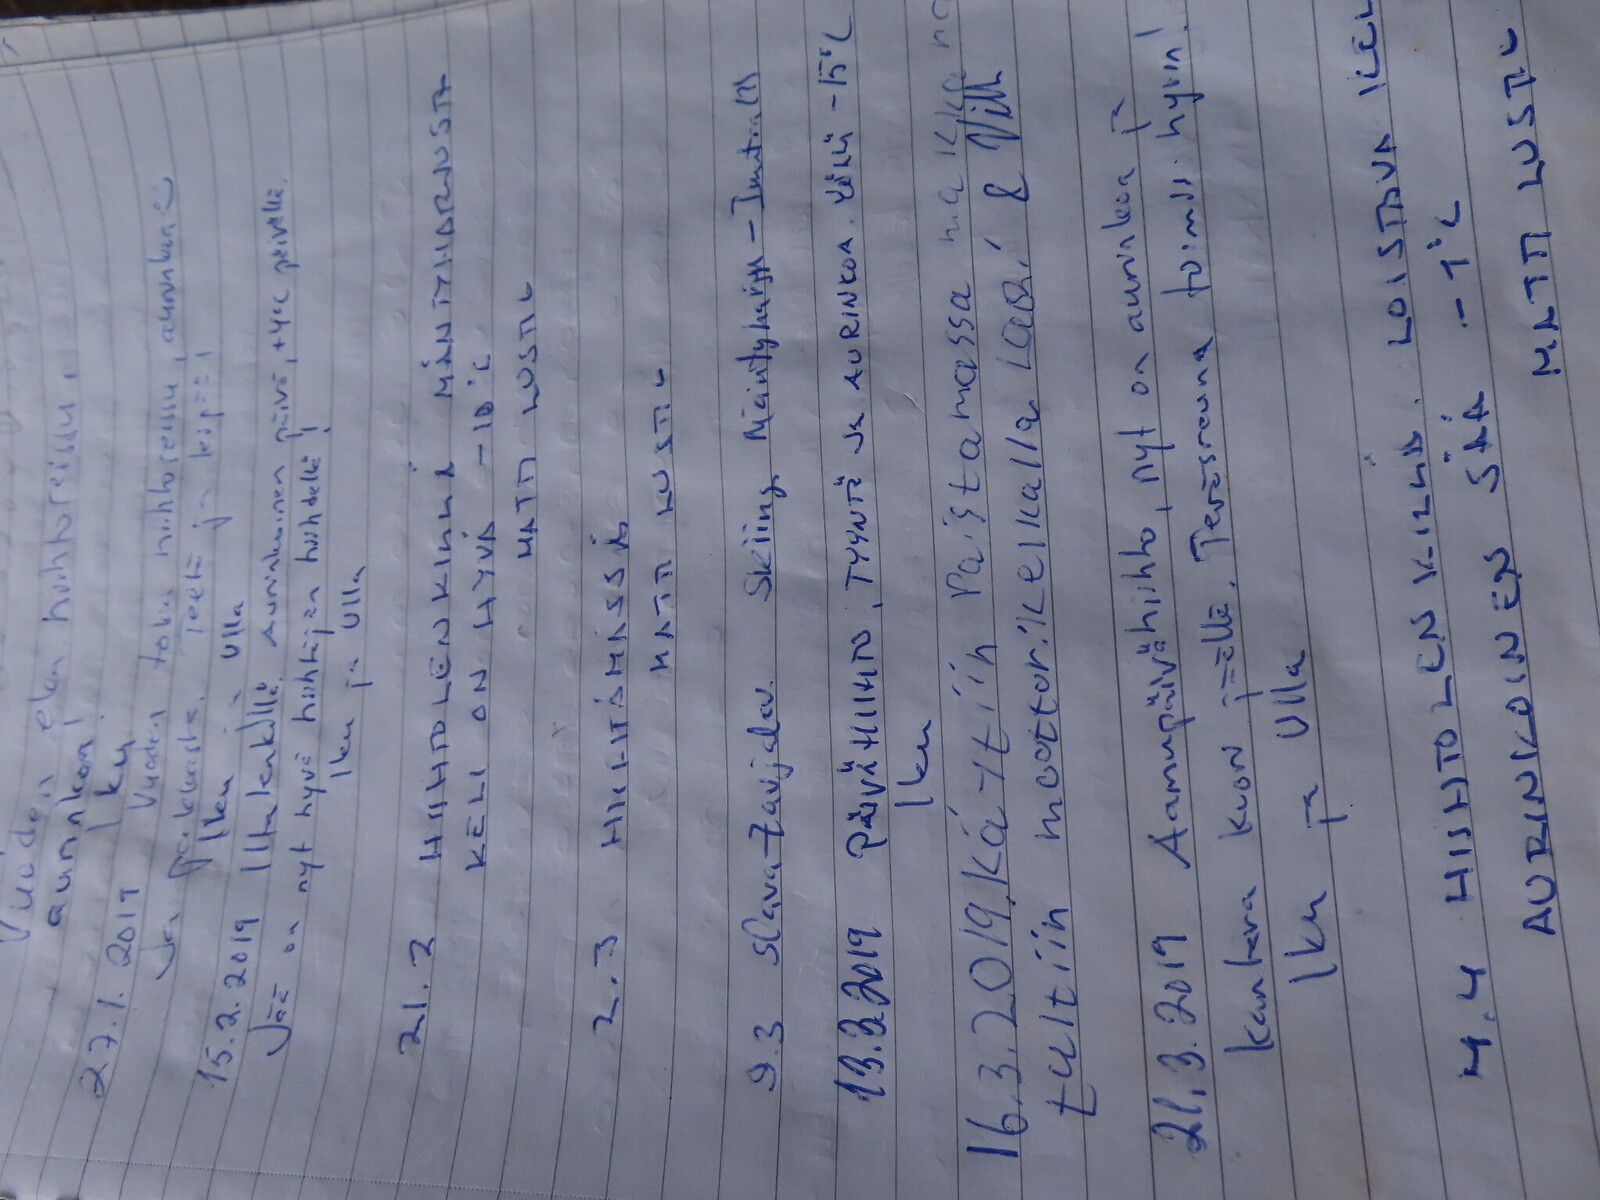 Vuoden eka hiihtoreissu,
aurinkoa!
27.1.2019 Iku
Vuoden toka hiihtoreissu, aurinkoinen
ja
Iku ja Ulla
15.2.2019 Aurinkoinen päivä, +4°C päivällä.
Jää on nyt hyvä hiihtäjän hiihdellä!
Iku ja Ulla
21.2 HIIHTOLENKILLÄ MÄNTYHARJUSTA
KELI ON HYVÄ -10°C
MATTI KUSTI
2.3 HIIHTÄMÄSSÄ
MATTI KUSTI
9.3 Skiing. Mäntyharju - Imatra
13.3.2019 PÄIVÄHIIHTO, TYYNTÄ JA AURINKOA. YÖLLÄ -15°C
Iku
16.3.2019. Käytiin Paistamassa makkara
tultiin moottorikelkalla &
21.3.2019 Aamupäivähiihto, nyt on aurinkoa ja
kantava kuori jäällä. Teräsreuna toimisi hyvin!
Iku ja Ulla
4.4 HIIHTOLENKILLÄ. LOISTAVA KELI
AURINKOINEN SÄÄ -1°C
MATTI KUSTI